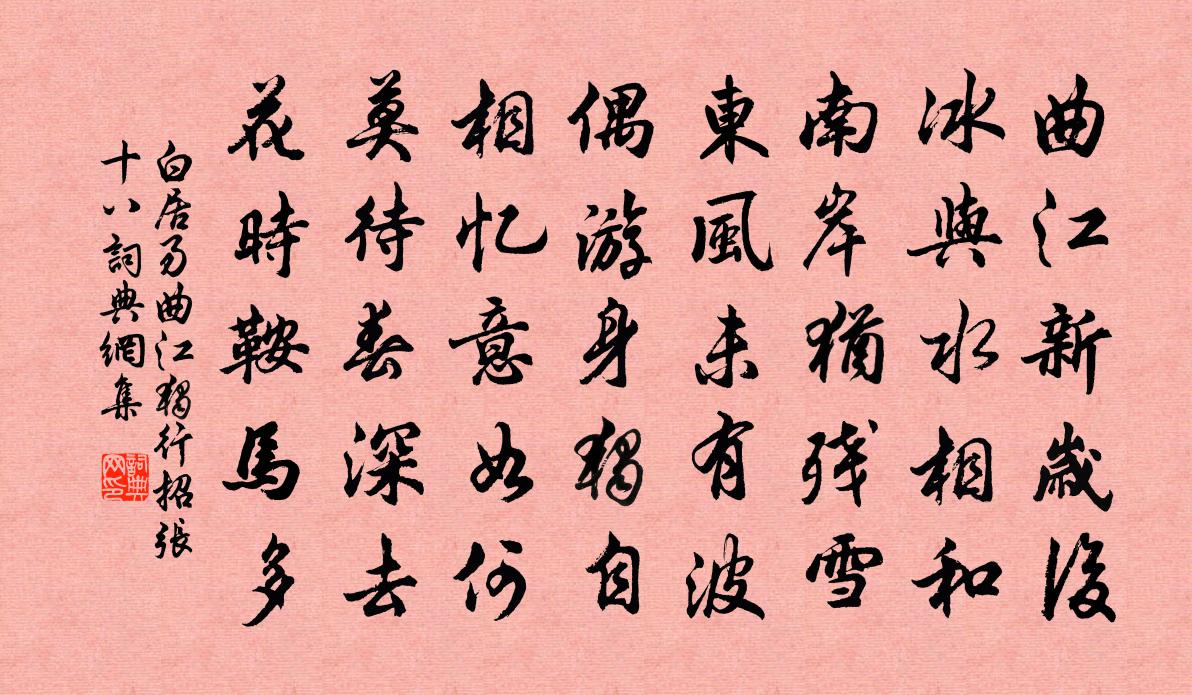 曲江新歲後
冰與水相和
南岸猶殘雪
東風未有波
偶游身獨自
相憶意如何
莫待春深去
花時鞍馬多
白居易曲江獨行招張
十八詞典網集
詞典
网印